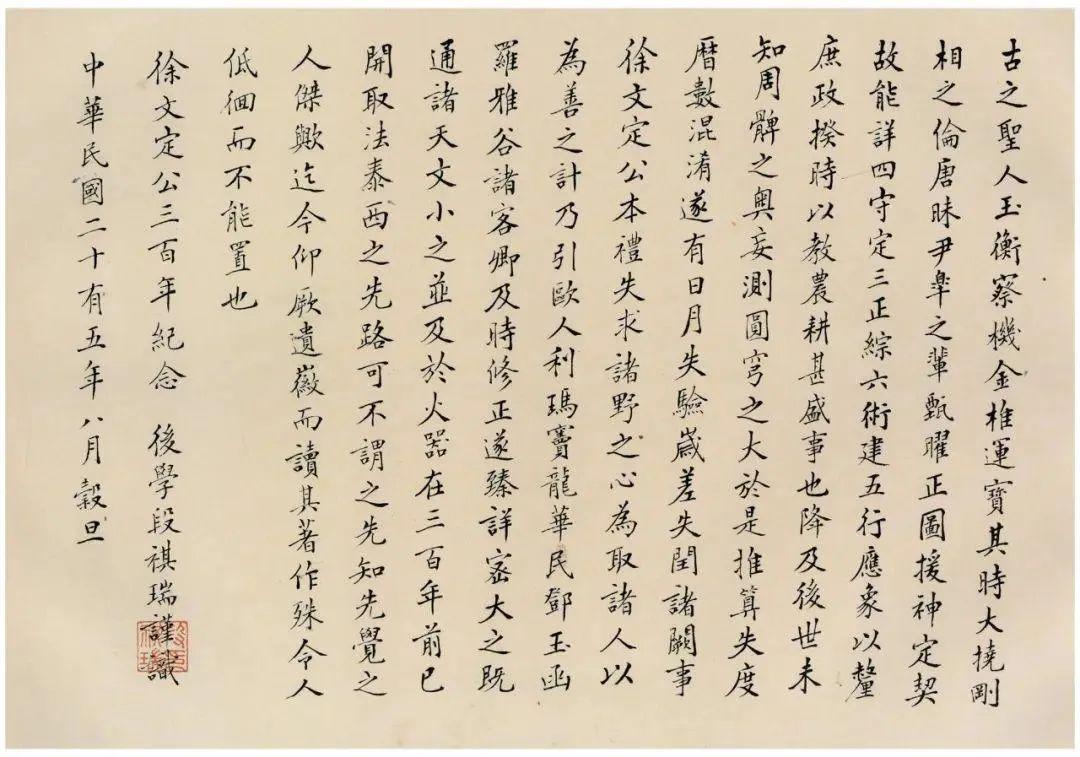 古之聖人玉衡察機金椎運寶其時大撓剛
相之倫唐昧尹臯之輩甄曜正圖援神定契
故能詳四守定三正綜六術建五行應象以釐
庶政揆時以教農耕甚盛事也降及後世未
知周髀之奧妄測圓穹之大於是推算失度
曆數混淆遂有日月失驗嵗差失閏諸闕事
徐文定公本禮失求諸野之心為取諸人以
為善之計乃引歐人利瑪竇龍華民鄧玉函
羅雅谷諸客卿及時修正遂臻詳密大之既
通諸天文小之並及於火器在三百年前已
開取法泰西之先路可不謂之先知先覺之
人傑歟迄今仰厥遺徽而讀其著作殊令人
低徊而不能置也
徐文定公三百年紀念 後學段祺瑞謹識
中華民國二十有五年八月穀旦